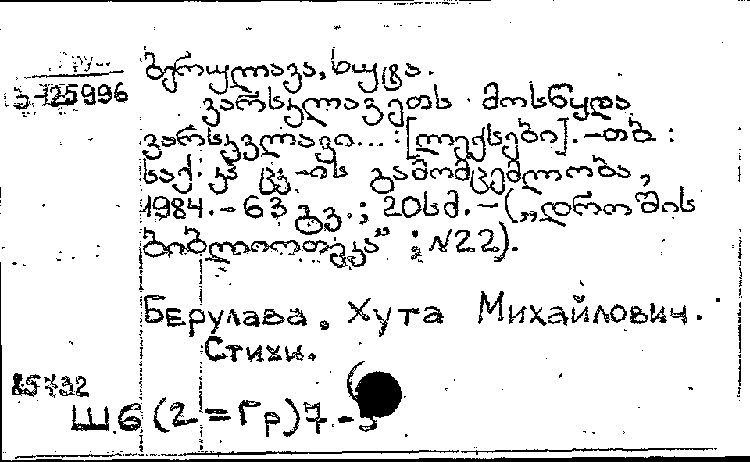 ბერულავა, ხუტა.
ვ-125996
ვარსკვლავეთს მოსწყდა
ვარსკვლავი... : [ლექსები]. - თბ. :
საქ. კპ ცკ-ის გამომცემლობა,
1984. - 63 გვ. ; 20 სმ. - („დროშის
ბიბლიოთეკა“ ; N22).
Берулава, Хута Михайлович.
Стихи.
85-732
Ш6(2=Гр)7-5